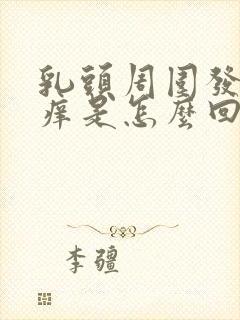 乳頭周圍發
癢是怎麼回
李疆